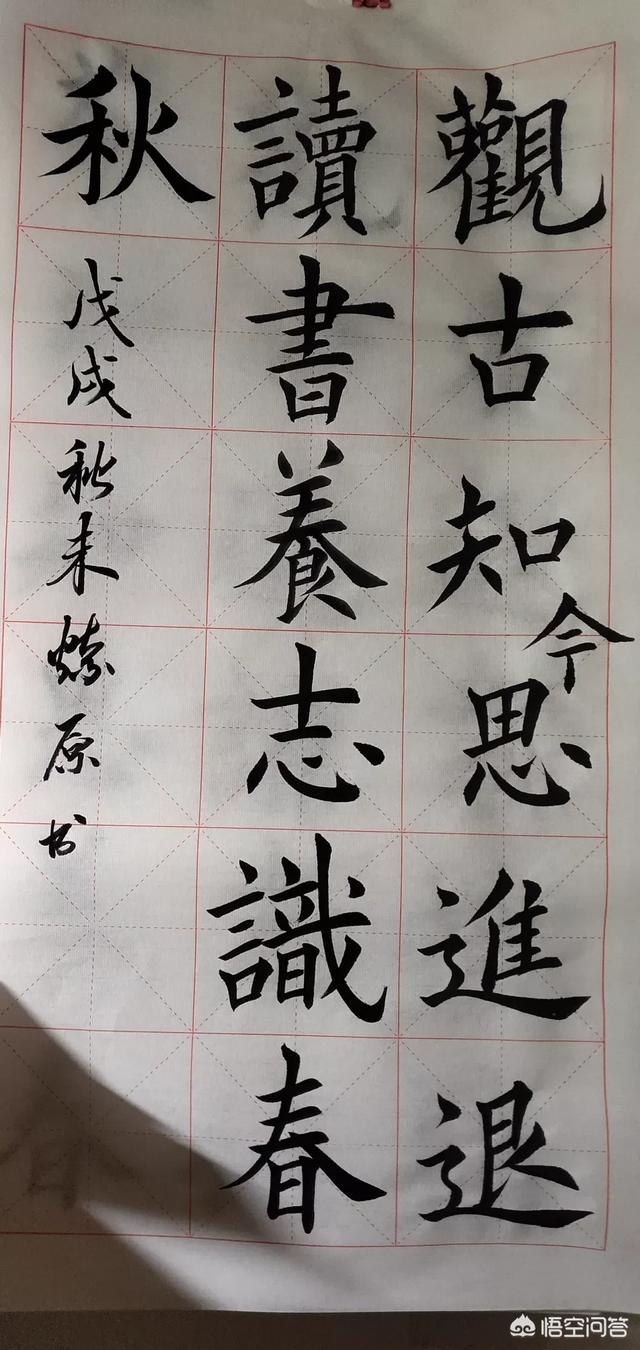 觀古知今思進退
讀書養志識春
秋
戊戌秋末燎原书
悟空问答